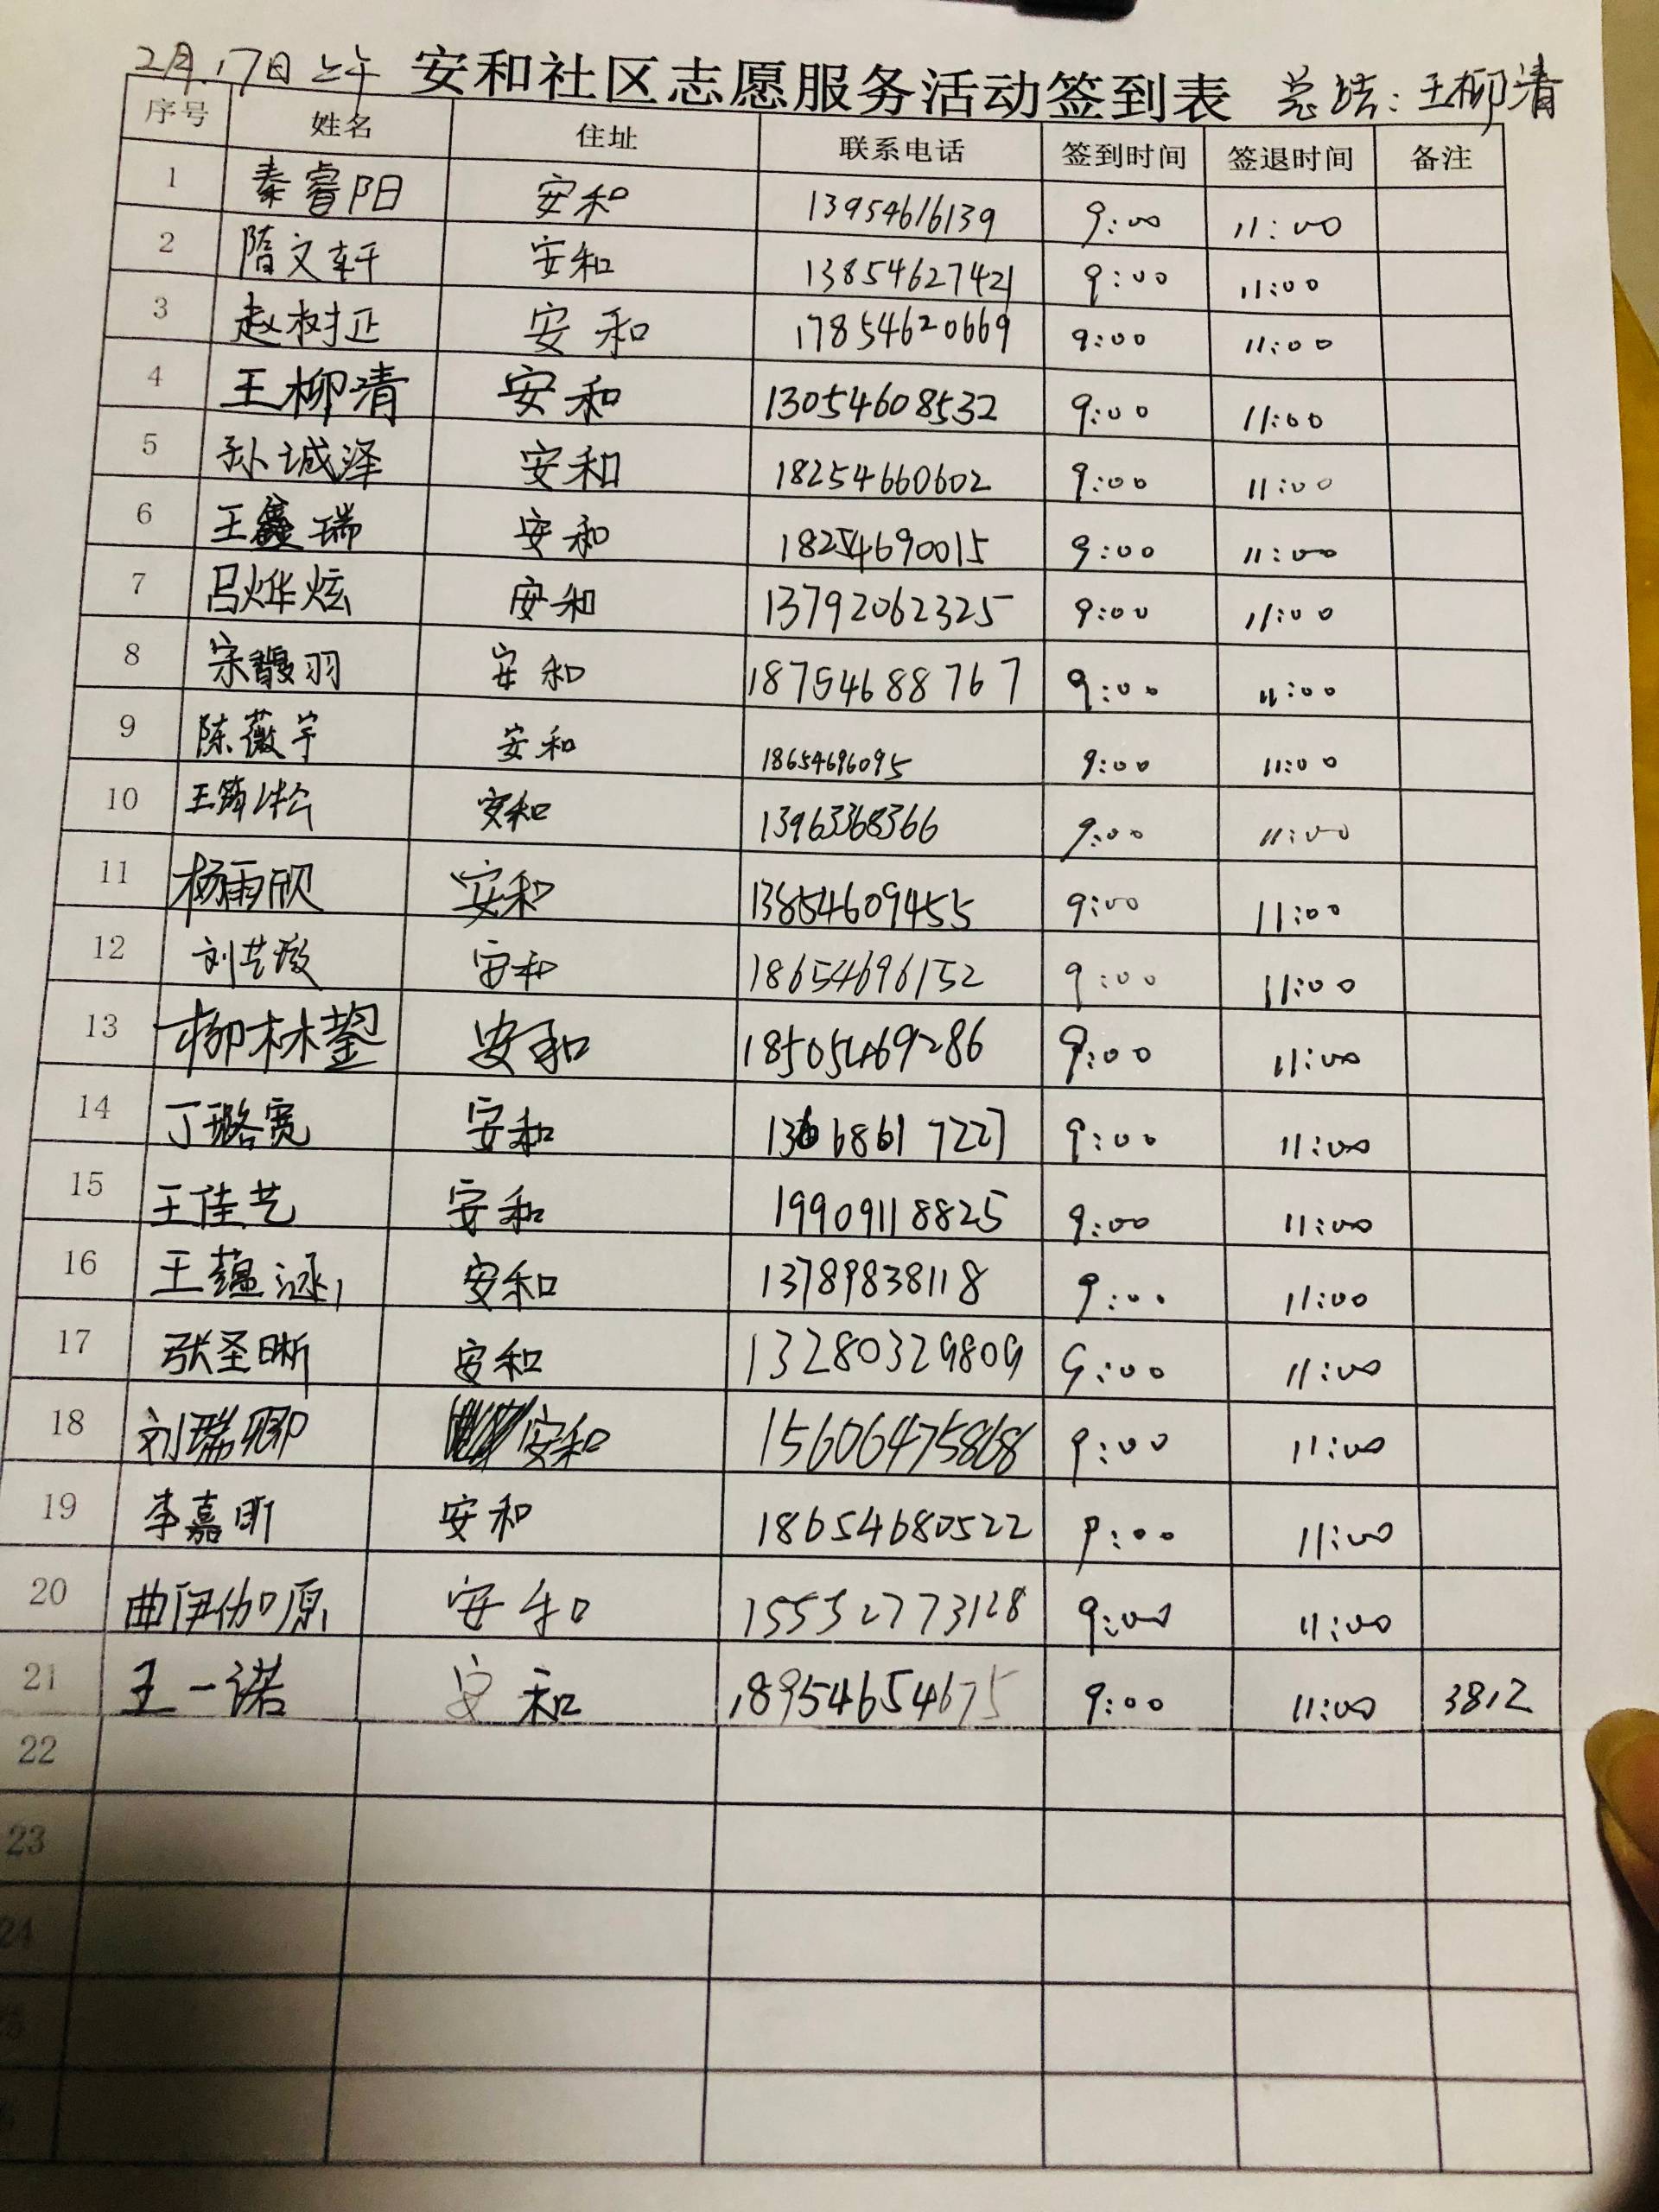 2月.17日上午 安和社区志愿服务活动签到表 总结：王柳清
序号 姓名 住址 联系电话 签到时间 签退时间 备注
1 秦睿阳 安和 13954616139 9:00 11:00
2 隋文轩 安和 13854627421 9:00 11:00
3 赵树正 安和 17854620669 9:00 11:00
4 王柳清 安和 13054608532 9:00 11:00
5 孙诚泽 安和 18254660602 9:00 11:00
6 王鑫瑞 安和 18254690015 9:00 11:00
7 吕烨炫 安和 13792062325 9:00 11:00
8 宋馥羽 安和 18754688767 9:00 11:00
9 陈薇宇 安和 18654696095 9:00 11:00
10 王 淞 安和 13963368366 9:00 11:00
11 杨雨欣 安和 13854609455 9:00 11:00
12 刘艺璇 安和 18654696152 9:00 11:00
13 柳林 安和 18505469286 9:00 11:00
14 丁璐宽 安和 13668617227 9:00 11:00
15 王佳艺 安和 19909118825 9:00 11:00
16 王蕴涵 安和 13789838118 9:00 11:00
17 张圣晰 安和 13280329809 9:00 11:00
18 刘瑞卿 安和 15606475868 9:00 11:00
19 李嘉昕 安和 18654680522 9:00 11:00
20 曲伊伽原 安和 15552773128 9:00 11:00
21 王一诺 安和 18954654675 9:00 11:00 3812
22
23
24